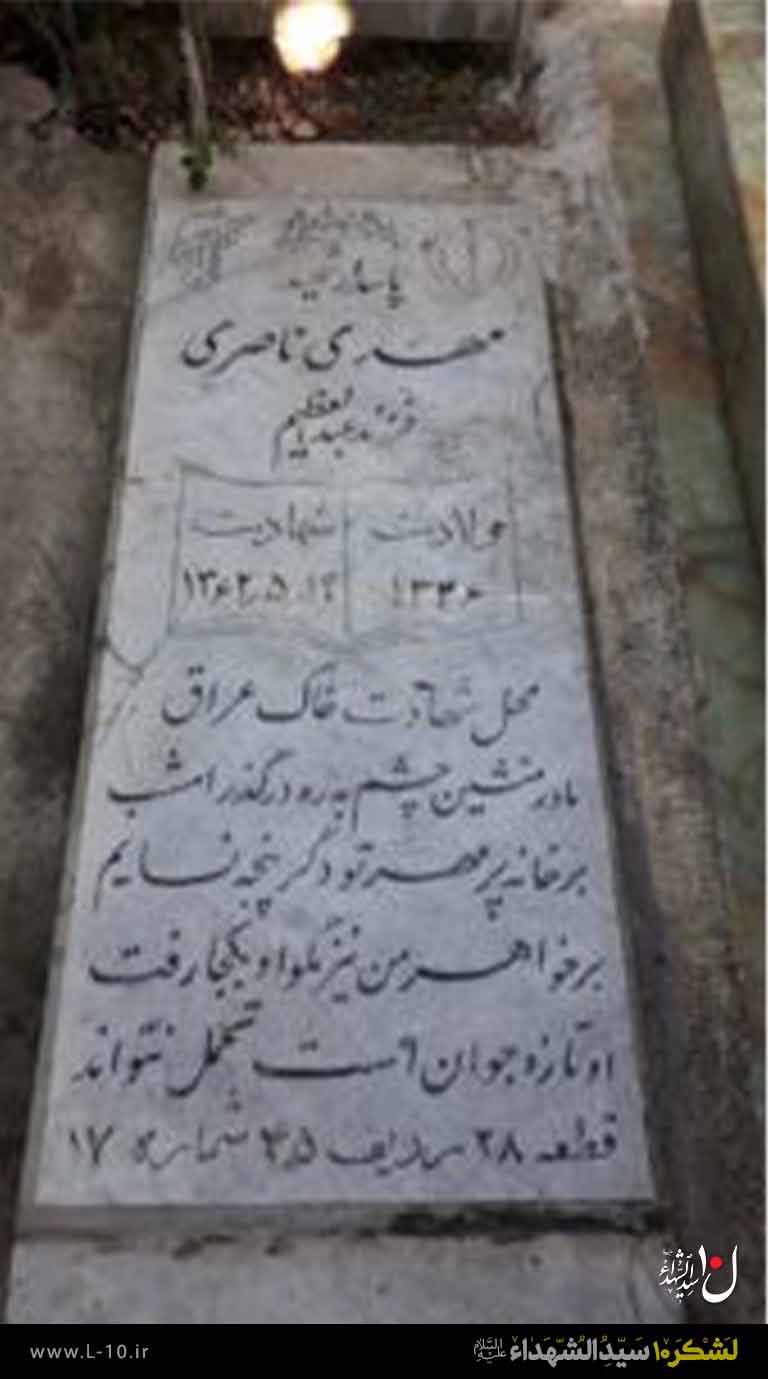 پاسدار شهید
مهدی ناصری
فرزند عبدالعظیم
ولادت
شهادت
۱۳۶۲.۵.۱۲
محل شهادت خاک عراق
مادر منشین چشم به ره در گذر امشب
بر خانه پر مهر تو دگر پنجه نسایم
بر خواهر من نیز مگو او بکجا رفت
او تازه جوان است تحمل نتواند
قطعه ۲۸ ردیف ۴۵ شماره ۱۷
ل۱۰ سیدالشهداء
www.L-10.ir
لَشکَر۱۰ سَیِّدُالشُّهَداء علیه السلام